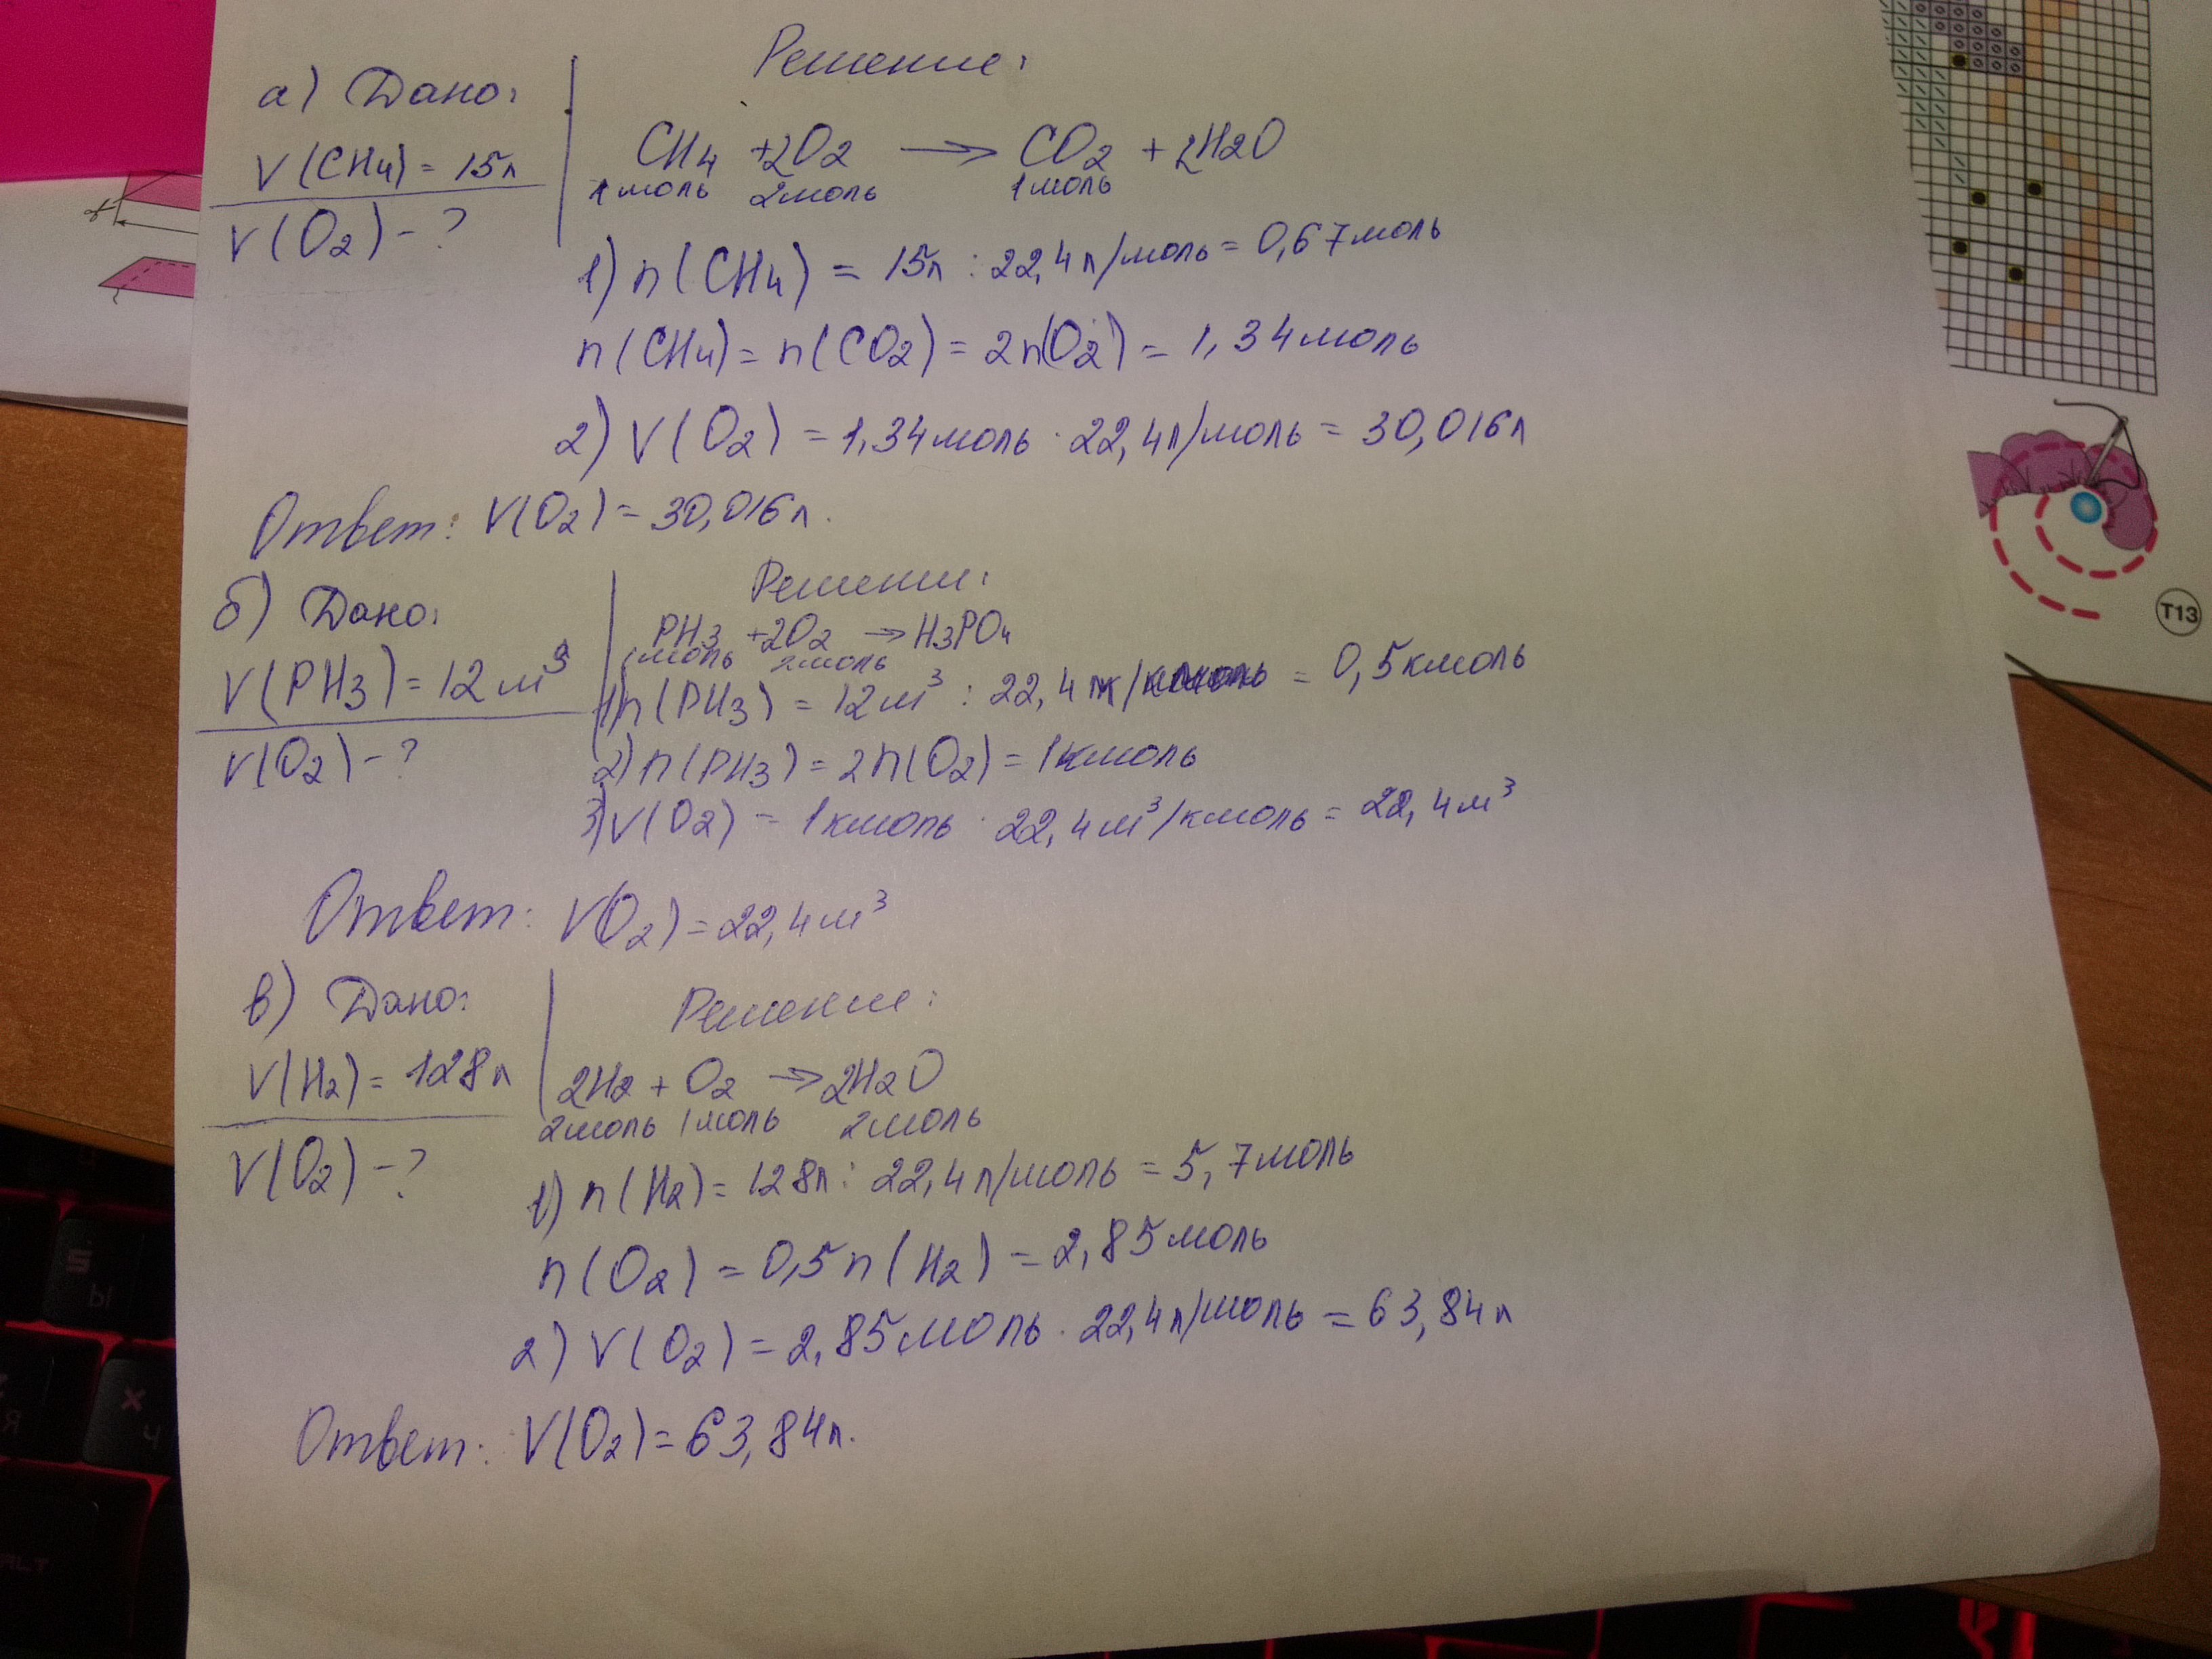 а) Дано:
V(CH4) = 15л
V(O2) - ?
Решение:
CH4 + 2O2 → CO2 + 2H2O
1моль 2моль 1моль
1) n(CH4) = 15л : 22,4л/моль = 0,67моль
n(CH4) = n(CO2) = 2n(O2) = 1,34моль
2) V(O2) = 1,34моль · 22,4л/моль = 30,016л
Ответ: V(O2) = 30,016л.
б) Дано:
V(PH3) = 12м³
V(O2) - ?
Решение:
PH3 + 2O2 → H3PO4
1моль 2моль
1) n(PH3) = 12м³ : 22,4 = 0,5кмоль
2) n(PH3) = 2n(O2) = 1кмоль
3) V(O2) = 1кмоль · 22,4м³/кмоль = 22,4м³
Ответ: V(O2) = 22,4м³
в) Дано:
V(H2) = 128л
V(O2) - ?
Решение:
2H2 + O2 → 2H2O
2моль 1моль 2моль
1) n(H2) = 128л : 22,4л/моль = 5,7моль
n(O2) = 0,5n(H2) = 2,85моль
2) V(O2) = 2,85моль · 22,4л/моль = 63,84л
Ответ: V(O2) = 63,84л.
T13
Ы
Ч
Я
ALT